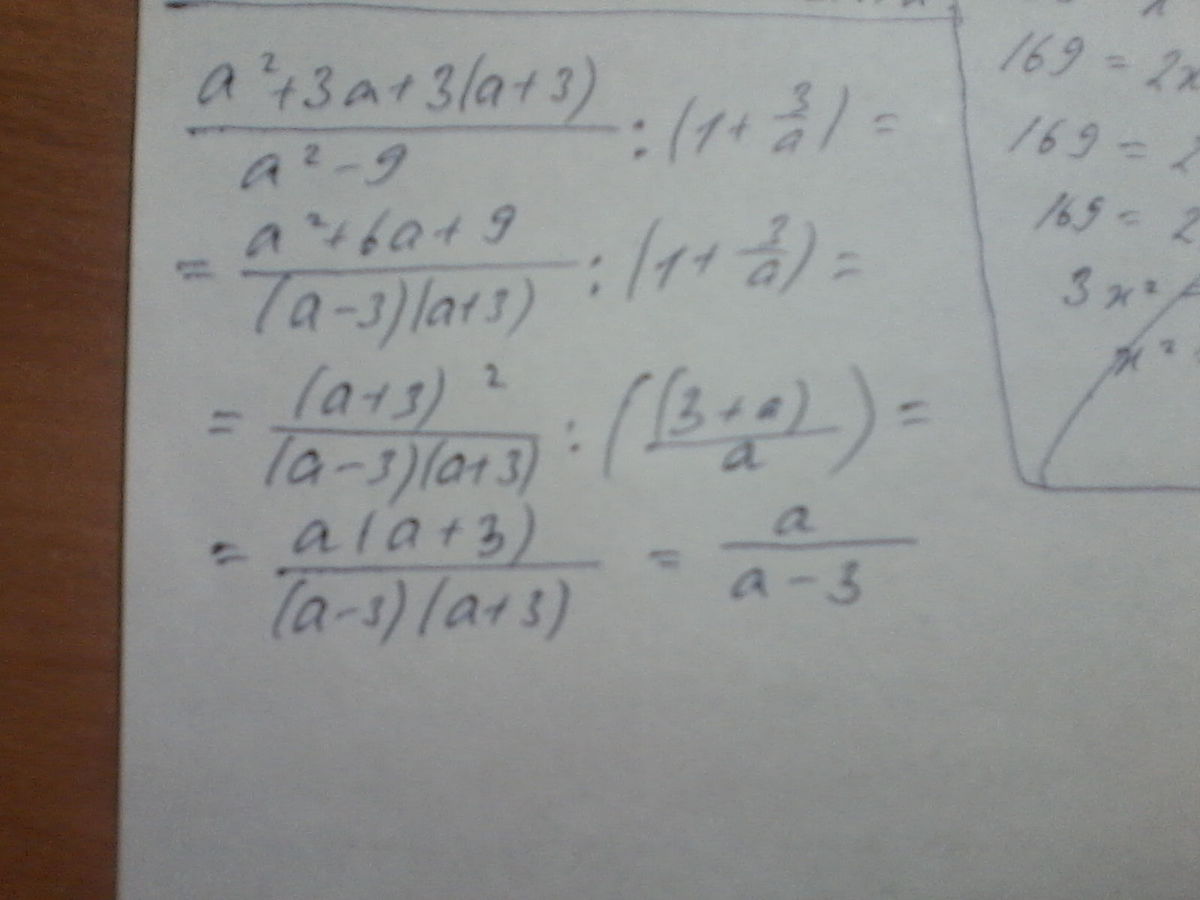 (a²+3a+3(a+3))/(a²-9) : (1+3/a) =
= (a²+6a+9)/((a-3)(a+3)) : (1+3/a) =
= (a+3)²/((a-3)(a+3)) : ((3+a)/a) =
= a(a+3)/((a-3)(a+3)) = a/(a-3)
169 = 2x
169 = 2
169 = 2
3x² =
x²